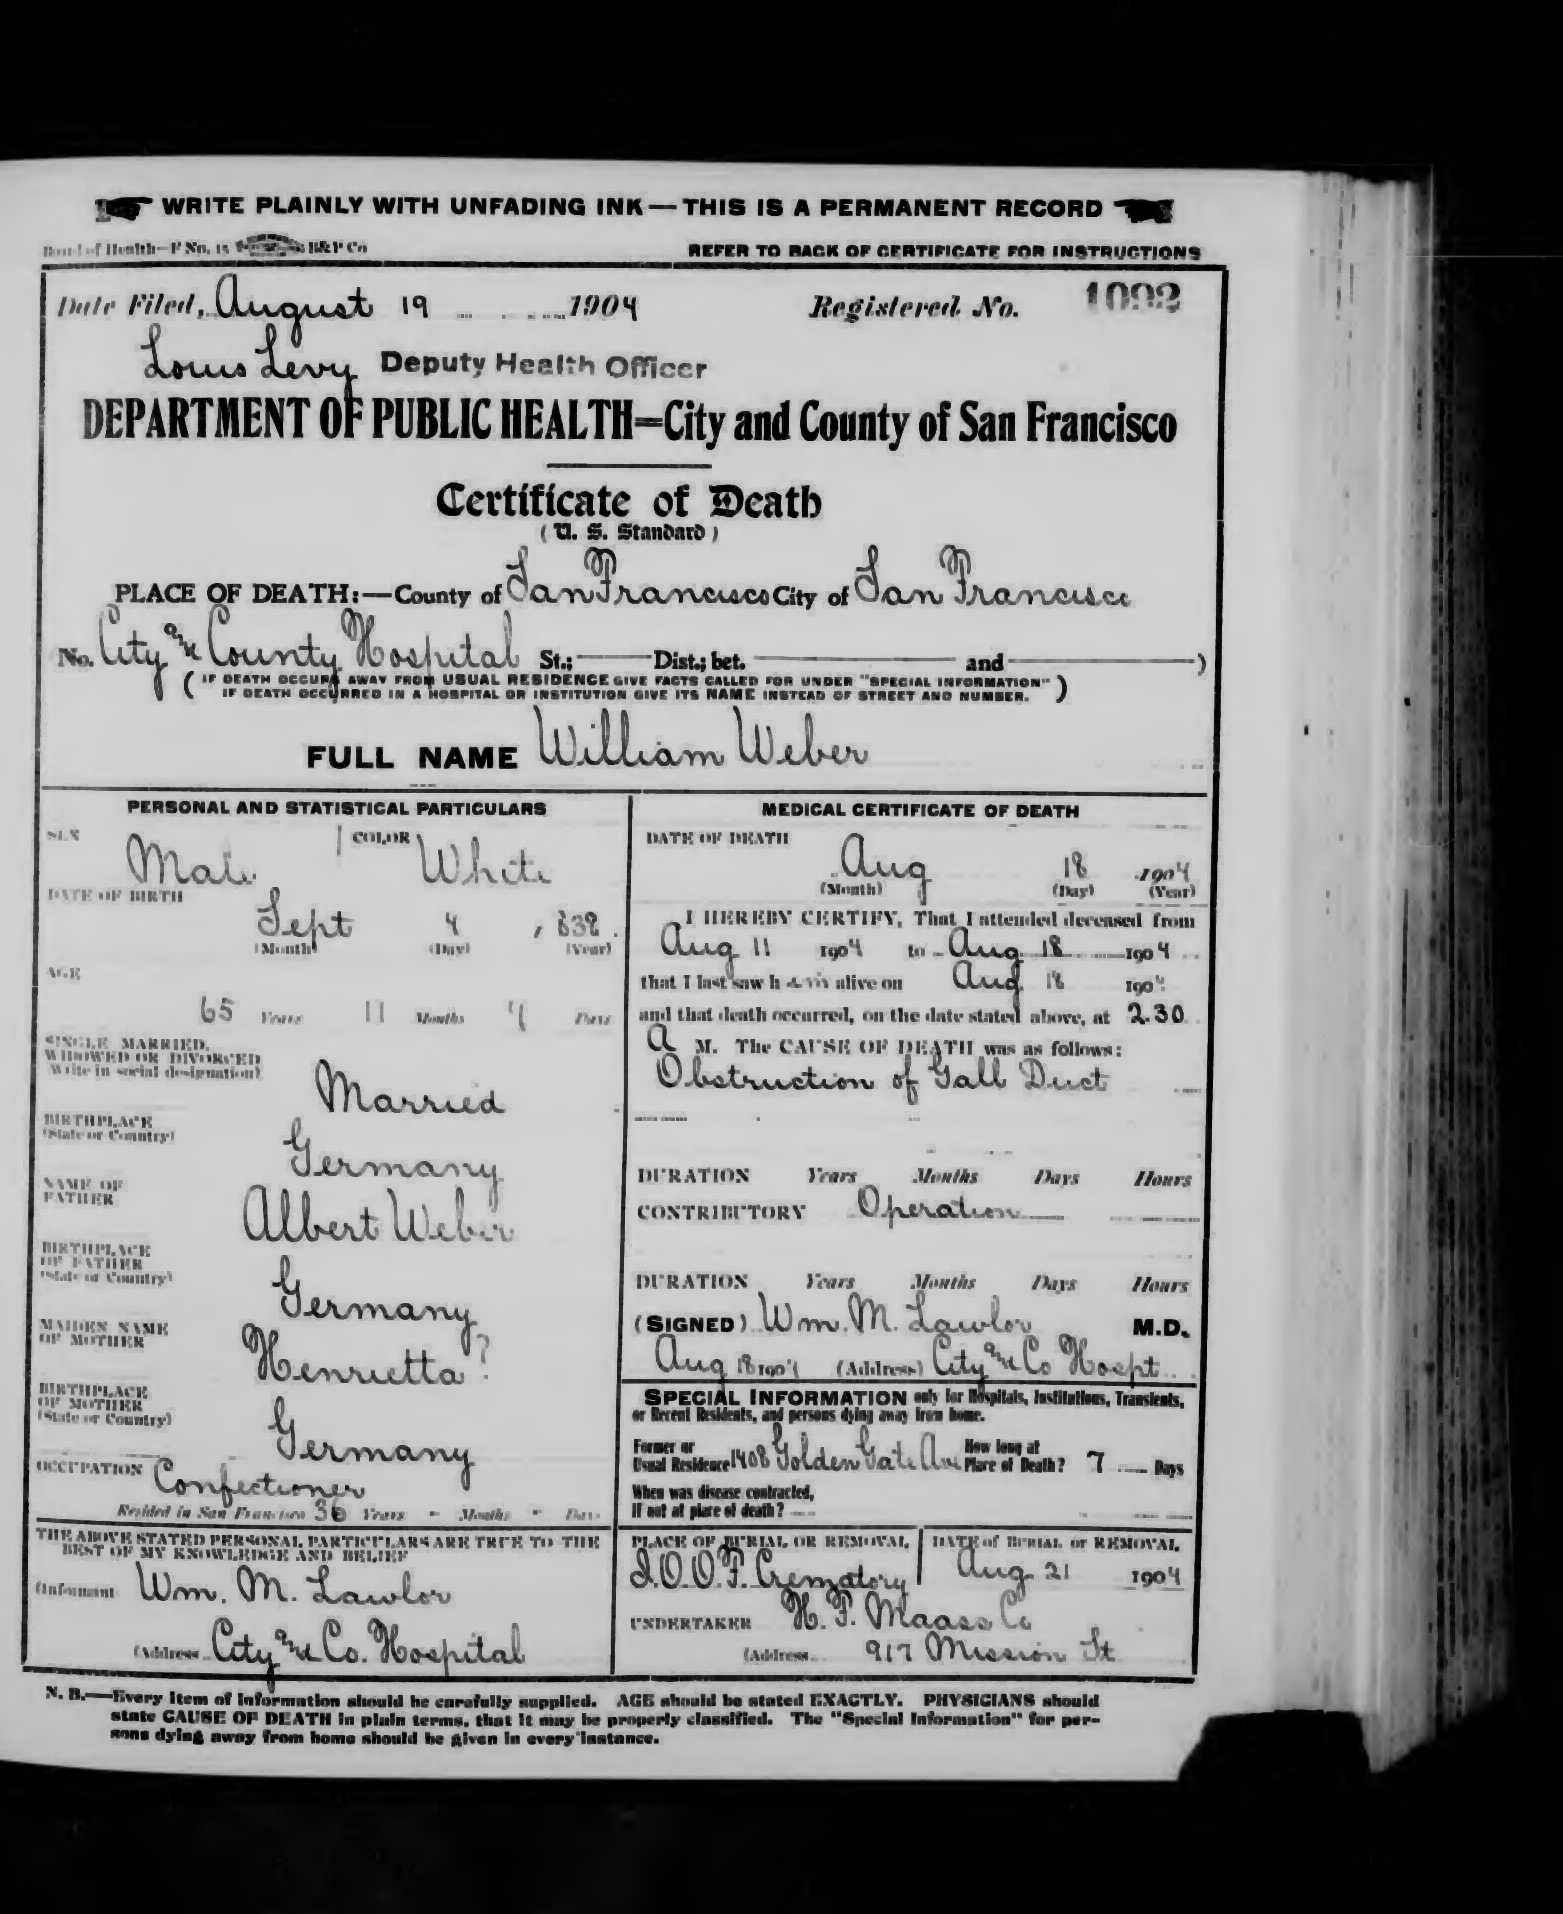 WRITE PLAINLY WITH UNFADING INK—THIS IS A PERMANENT RECORD
Board of Health—F No. 15 B&P Co
REFER TO BACK OF CERTIFICATE FOR INSTRUCTIONS
Date Filed, August 19 1904 Registered No. 1092
Louis Levy Deputy Health Officer
DEPARTMENT OF PUBLIC HEALTH—City and County of San Francisco
Certificate of Death
(U. S. Standard)
PLACE OF DEATH:—County of San Francisco City of San Francisco
No. City and County Hospital St.; Dist.; bet. and )
( IF DEATH OCCURS AWAY FROM USUAL RESIDENCE GIVE FACTS CALLED FOR UNDER "SPECIAL INFORMATION"
IF DEATH OCCURRED IN A HOSPITAL OR INSTITUTION GIVE ITS NAME INSTEAD OF STREET AND NUMBER. )
FULL NAME William Weber
PERSONAL AND STATISTICAL PARTICULARS
SEX Male COLOR White
DATE OF BIRTH
Sept 4 , 838
(Month) (Day) (Year)
AGE
65 Years 11 Months Days
SINGLE MARRIED,
WIDOWED OR DIVORCED
Write in social designation)
Married
BIRTHPLACE
(State or Country)
Germany
NAME OF
FATHER
Albert Weber
BIRTHPLACE
OF FATHER
(State or Country)
Germany
MAIDEN NAME
OF MOTHER
Henrietta ?
BIRTHPLACE
OF MOTHER
(State or Country)
Germany
OCCUPATION Confectioner
Resided in San Francisco 36 Years - Months - Days
THE ABOVE STATED PERSONAL PARTICULARS ARE TRUE TO THE
BEST OF MY KNOWLEDGE AND BELIEF
(Informant Wm. M. Lawlor
(Address City and Co. Hospital
MEDICAL CERTIFICATE OF DEATH
DATE OF DEATH
Aug 18 1904
(Month) (Day) (Year)
I HEREBY CERTIFY, That I attended deceased from
Aug 11 1904 to Aug 18 1904
that I last saw h im alive on Aug. 18 1904
and that death occurred, on the date stated above, at 2.30
A M. The CAUSE OF DEATH was as follows:
Obstruction of Gall Duct
DURATION Years Months Days Hours
CONTRIBUTORY Operation
DURATION Years Months Days Hours
(SIGNED) Wm. M. Lawlor M.D.
Aug 18 1904 (Address) City and Co Hospt
SPECIAL INFORMATION only for Hospitals, Institutions, Transients,
or Recent Residents, and persons dying away from home.
Former or
Usual Residence 1408 Golden Gate Ave How long at
Place of Death? 7 Days
When was disease contracted,
If not at place of death?
PLACE OF BURIAL OR REMOVAL DATE of BURIAL or REMOVAL
I.O.O.F. Crematory Aug 21 1904
UNDERTAKER H. F. Maass Co
(Address 917 Mission St
N. B.—Every item of information should be carefully supplied. AGE should be stated EXACTLY. PHYSICIANS should
state CAUSE OF DEATH in plain terms, that it may be properly classified. The "Special Information" for per-
sons dying away from home should be given in every instance.